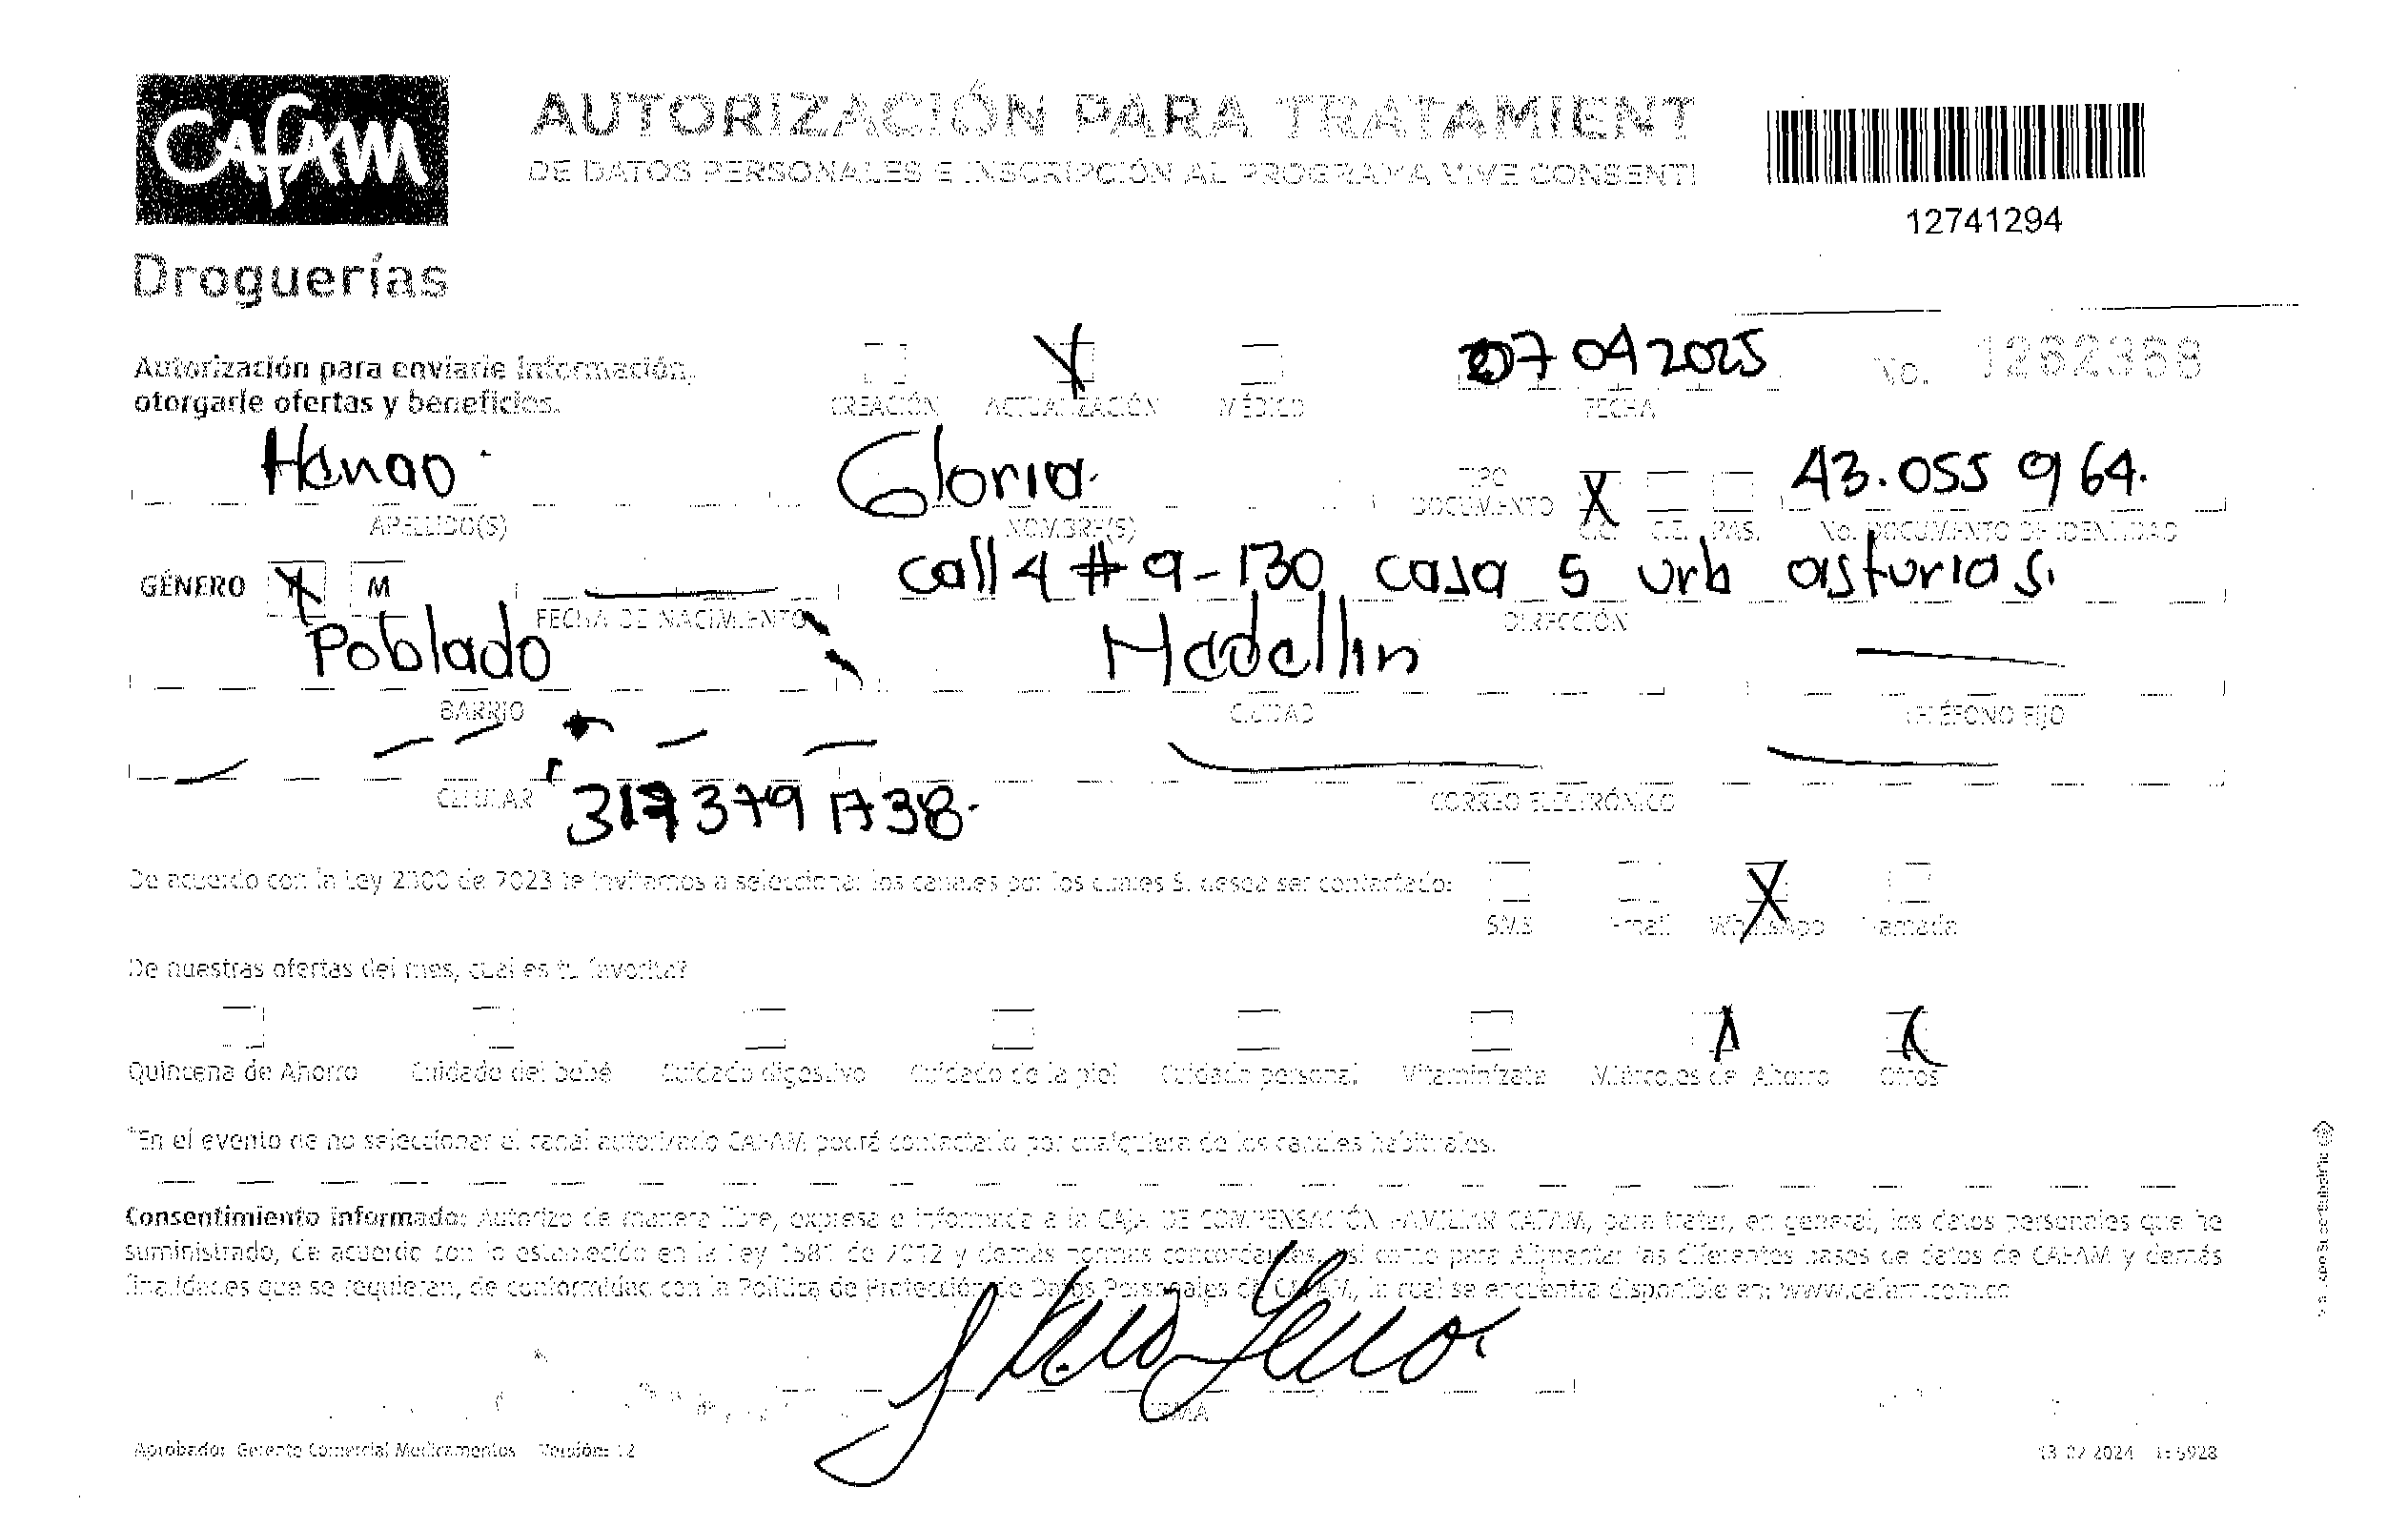 CAFAM
AUTORIZACIÓN PARA TRATAMIENT
DE DATOS PERSONALES E INSCRIPCIÓN AL PROGRAMA VIVE CONSENTI
12741294
Droguerías
Autorización para enviarle información,
otorgarle ofertas y beneficios.
CREACIÓN ACTUALIZACIÓN MÉDICO
07 04 2025
FECHA
No. 1262368
Henao
APELLIDO(S)
Gloria
NOMBRE(S)
TIPO DOCUMENTO X C.C. C.E. PAS.
43.055 964.
No. DOCUMENTO DE IDENTIDAD
GÉNERO X M
FECHA DE NACIMIENTO
call 4 # 9-130 casa 5 urb asturias.
DIRECCIÓN
Poblado
BARRIO
Medellin
CIUDAD
TELÉFONO FIJO
CELULAR 317 379 1738.
CORREO ELECTRÓNICO
De acuerdo con la Ley 2300 de 2023 le invitamos a seleccionar los canales por los cuales Sí desea ser contactado:
SMS Email WhatsApp Llamada
De nuestras ofertas del mes, cuál es tu favorita?
Quincena de Ahorro Cuidado del bebé Cuidado digestivo Cuidado de la piel Cuidado personal Vitaminízate Miércoles de Ahorro Otros
*En el evento de no seleccionar el canal autorizado CAFAM podrá contactarlo por cualquiera de los canales habituales.
Consentimiento informado: Autorizo de manera libre, expresa e informada a la CAJA DE COMPENSACIÓN FAMILIAR CAFAM, para tratar, en general, los datos personales que he
suministrado, de acuerdo con lo establecido en la Ley 1581 de 2012 y demás normas concordantes, así como para Alimentar las diferentes bases de datos de CAFAM y demás
finalidades que se requieran, de conformidad con la Política de Protección de Datos Personales de CAFAM, la cual se encuentra disponible en: www.cafam.com.co
FIRMA
Aprobador Gerente Comercial Medicamentos Versión: 12